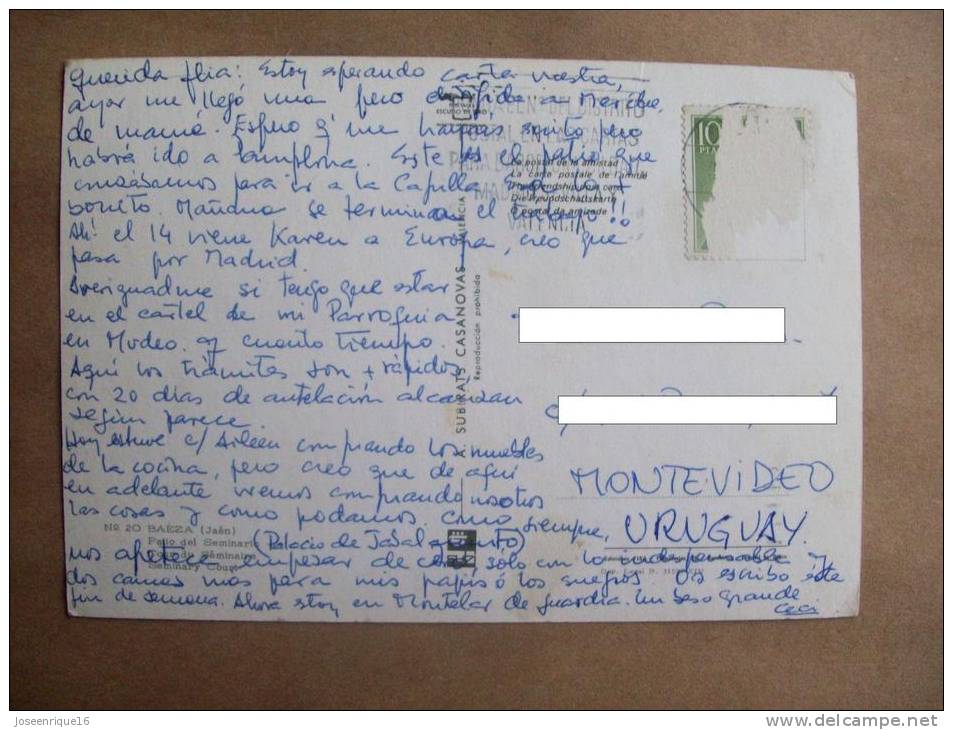 Querida flia: Estoy esperando carta vostra,
ayer me llegó una pero dirigida a Meriche
de mamá. Espero q' me hayáis escrito pero
habrá ido a Pamplona. Este es el patio que
cruzábamos para ir a la Capilla. Era lo +
bonito. Mañana se termina el trabajo!!
Ah! el 14 viene Karen a Europa, creo que
pasa por Madrid.
Averiguadme si tengo que estar
en el cartel de mi Parroquia
en Mvdeo. y cuánto tiempo.
Aquí los trámites son + rápidos
con 20 días de antelación alcanzan
según parece.
Hoy estuve c/ Aileen comprando los muebles
de la cocina, pero creo que de aquí
en adelante iremos comprando nosotros
las cosas y como podamos. Como siempre,
nos apetece empezar de cero sólo con lo indispensable y
dos camas más para mis papis ó los suegros. Os escribo éste
fin de semana. Ahora estoy en Montelar de guardia. Un beso grande
Ceci
Nº 20 BAEZA (Jaén)
Patio del Seminario
(Palacio de Jabalquinto)
Seminary Court
A. SUBIRATS CASANOVAS
VALENCIA
Reproducción prohibida
ESCUDO DE ORO
DEL DISTRITO
POSTAL EN LAS CARTAS
PARA BARCELONA
VALENCIA
La postal de la amistad
La carte postale de l'amitié
The friendship post card
Die Freundschaftskarte
O postal da amizade
10
PTAS
MONTEVIDEO
URUGUAY.
Joseenrique16
www.delcampe.net